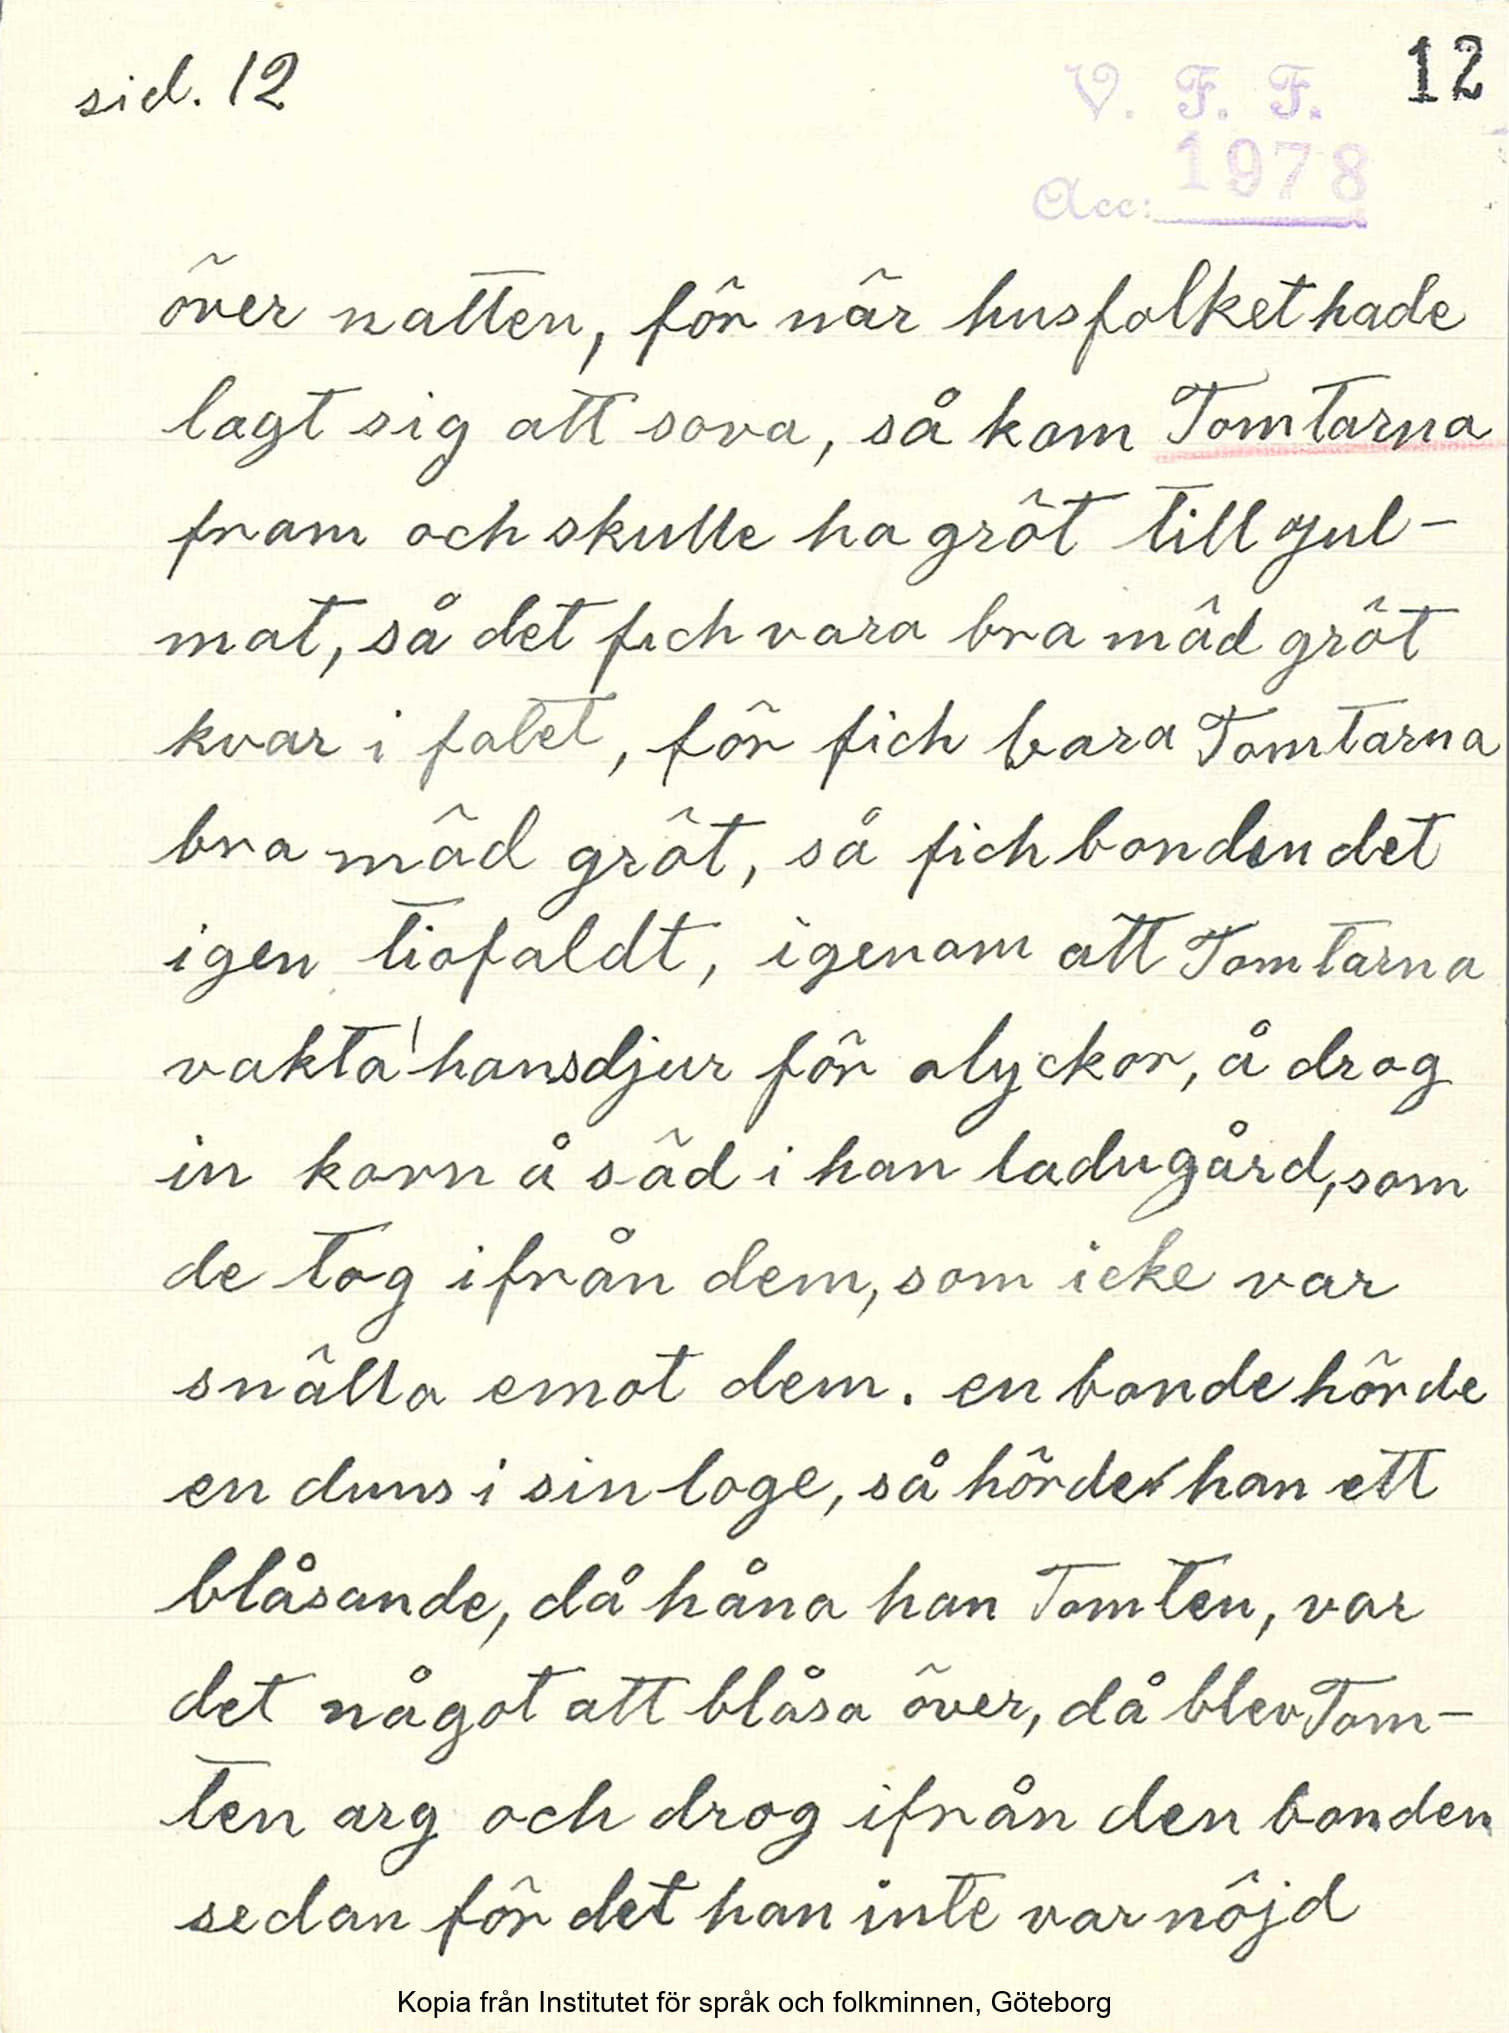 sid. 12
12
V. F. F.
1978
Acc:
över natten, för när husfolket hade
lagt sig att sova, så kom Tomtarna
fram och skulle ha gröt till jul-
mat, så det fich vara bra mäd gröt
kvar i fatet, för fich bara Tomtarna
bra mäd gröt, så fich bonden det
igen tiofaldt, igenom att Tomtarna
vakta' hansdjur för olyckor, å drog
in korn å säd i han ladugård, som
de tog ifrån dem, som icke var
snälla emot dem. en bonde hörde
en duns i sin loge, så hörde han ett
blåsande, då håna han Tomten, var
det något att blåsa över, då blev Tom-
ten arg och drog ifrån den bonden
sedan för det han inte var nöjd
Kopia från Institutet för språk och folkminnen, Göteborg